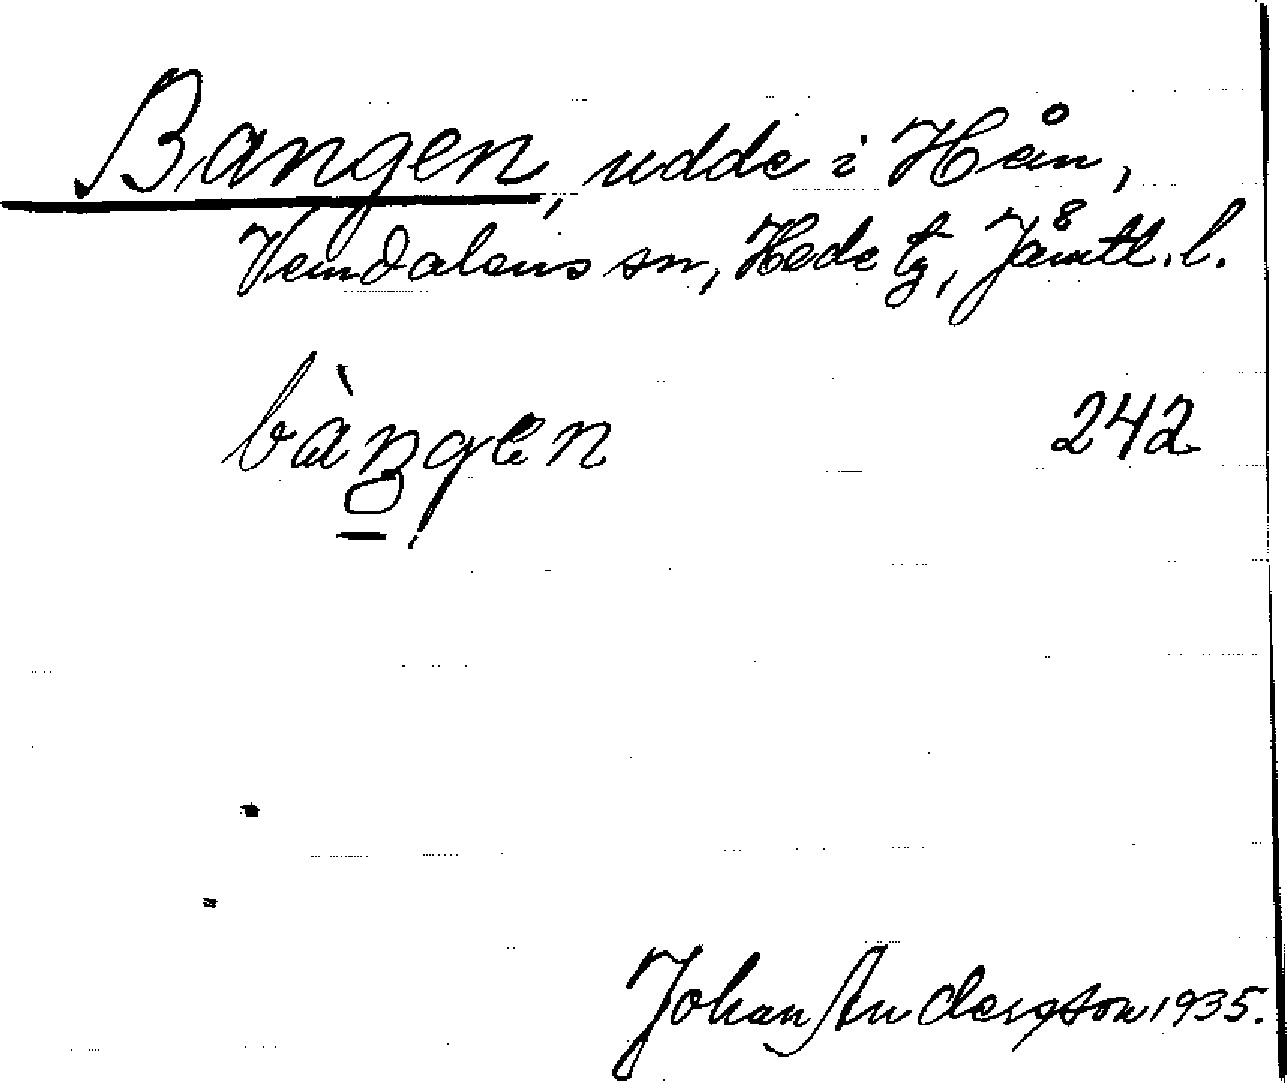 Bangen, udde i Håån,
Vemdalens sn, Hede tg, Jämtl. l.
bàŋgen 242
Johan Andersson 1935.